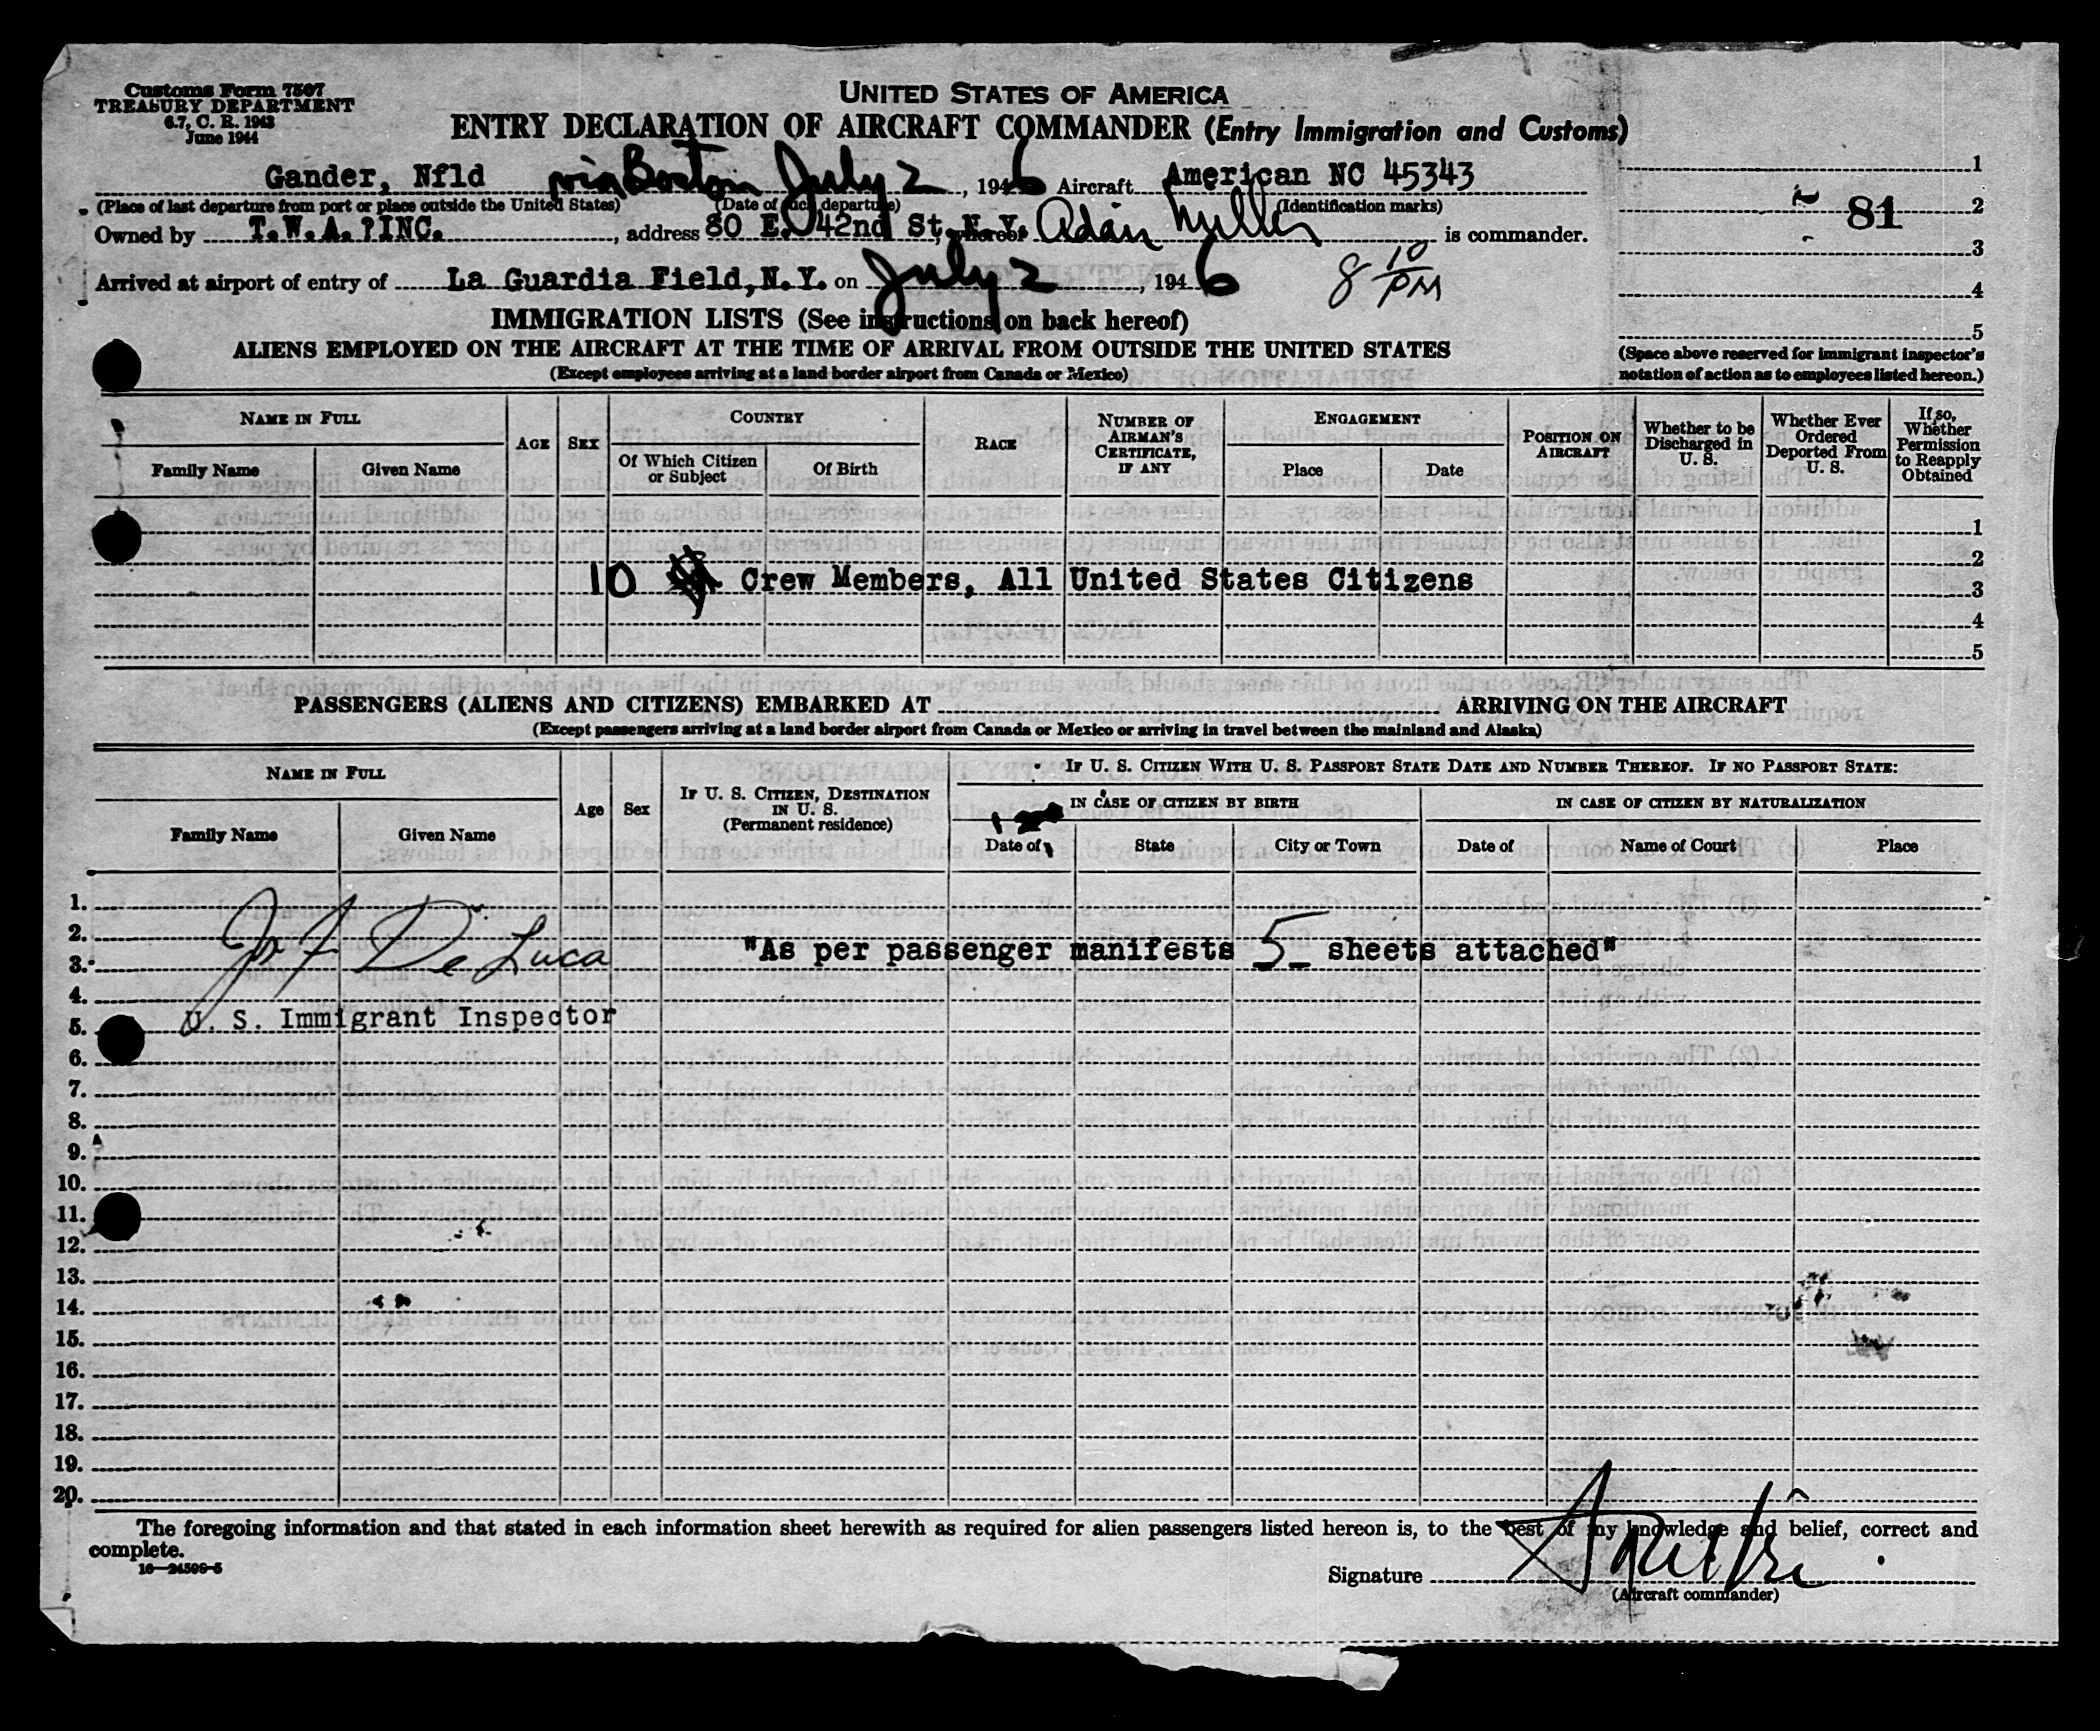 Customs Form 7507
TREASURY DEPARTMENT
6.7, C. R. 1943
June 1944
UNITED STATES OF AMERICA
ENTRY DECLARATION OF AIRCRAFT COMMANDER (Entry Immigration and Customs)
Gander, Nfld via Boston July 2, 1946 Aircraft American NC 45343
(Place of last departure from port or place outside the United States) (Date of such departure) (Identification marks)
Owned by T.W.A.?INC., address 80 E. 42nd St.N.Y. whereof Adair Miller is commander.
Arrived at airport of entry of La Guardia Field,N.Y. on July 2, 1946 8 10 PM
1
2 81
3
4
5
(Space above reserved for immigrant inspector's
notation of action as to employees listed hereon.)
IMMIGRATION LISTS (See instructions on back hereof)
ALIENS EMPLOYED ON THE AIRCRAFT AT THE TIME OF ARRIVAL FROM OUTSIDE THE UNITED STATES
(Except employees arriving at a land border airport from Canada or Mexico)
NAME IN FULL
Family Name Given Name
AGE SEX
COUNTRY
Of Which Citizen or Subject Of Birth
RACE
NUMBER OF AIRMAN'S CERTIFICATE, IF ANY
ENGAGEMENT
Place Date
POSITION ON AIRCRAFT
Whether to be Discharged in U. S.
Whether Ever Ordered Deported From U. S.
If so, Whether Permission to Reapply Obtained
1
2
10 Crew Members, All United States Citizens 3
4
5
PASSENGERS (ALIENS AND CITIZENS) EMBARKED AT ARRIVING ON THE AIRCRAFT
(Except passengers arriving at a land border airport from Canada or Mexico or arriving in travel between the mainland and Alaska)
NAME IN FULL
Family Name Given Name
Age Sex
IF U. S. CITIZEN, DESTINATION IN U. S.
(Permanent residence)
IF U. S. CITIZEN WITH U. S. PASSPORT STATE DATE AND NUMBER THEREOF. IF NO PASSPORT STATE:
IN CASE OF CITIZEN BY BIRTH IN CASE OF CITIZEN BY NATURALIZATION
Date of State City or Town Date of Name of Court Place
1.
2.
3. De Luca "As per passenger manifests 5 sheets attached"
4.
5. U. S. Immigrant Inspector
6.
7.
8.
9.
10.
11.
12.
13.
14.
15.
16.
17.
18.
19.
20.
The foregoing information and that stated in each information sheet herewith as required for alien passengers listed hereon is, to the best of my knowledge and belief, correct and
complete.
16—24596-5
Signature
(Aircraft commander)